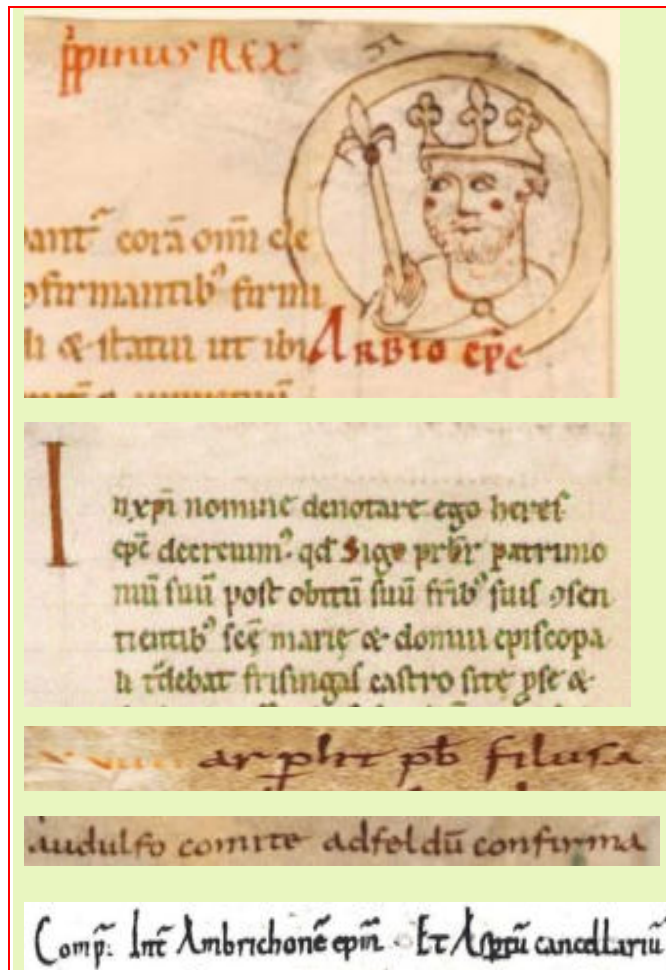 pipinus REX
ant᷑ corā om̄i cle
ofirmantib᷒ firmi
li & statui ut ibi
ARBIO ep̄c
I
n xp̄i nomine denotare ego heres
ep̄c decreuim᷒ qd̄ Sigo pr̄br patrimo
niū suū post obitū suū fr̄ib᷒ suis ꝯsen
tientib᷒ sc̄ę marię & domui episcopa
li t̄debat frisingas castro sitę ꝑse &
ar phit pb̄ filusa
audulfo comite adfeldū confirma
Comp̄: Int̄ Ambrichonē epm̄ · Et cancellariū